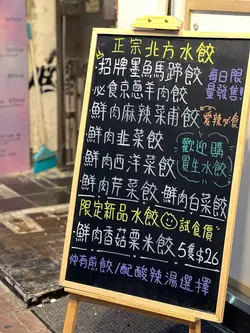 正宗北方水餃
招牌墨魚馬蹄餃
必食京蔥羊肉餃
每日限量發售!
鮮肉麻辣菜甫餃
愛辣必食
鮮肉韮菜餃
鮮肉西洋菜餃
歡迎購買生水餃
鮮肉芹菜餃、鮮肉白菜餃
限定新品水餃 試食價
鮮肉香菇粟米餃 5隻$26
仲有煎餃/配酸辣湯選擇